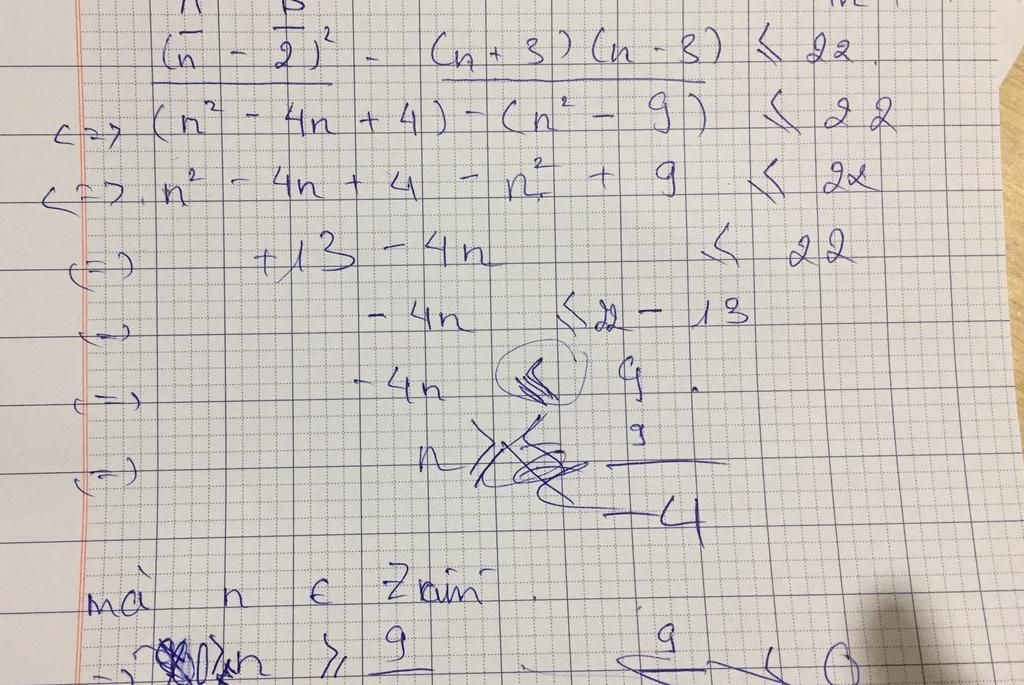 A B
(n - 2)² - (n + 3) (n - 3) ≤ 22.
<=> (n² - 4n + 4) - (n² - 9) ≤ 22
<=> n² - 4n + 4 - n² + 9 ≤ 22
(=) +13 - 4n ≤ 22
(=) - 4n ≤ 22 - 13
(=) - 4n ≤ 9.
(=) n ≥ 9/-4
mà n ∈ Z
n ≥ 9